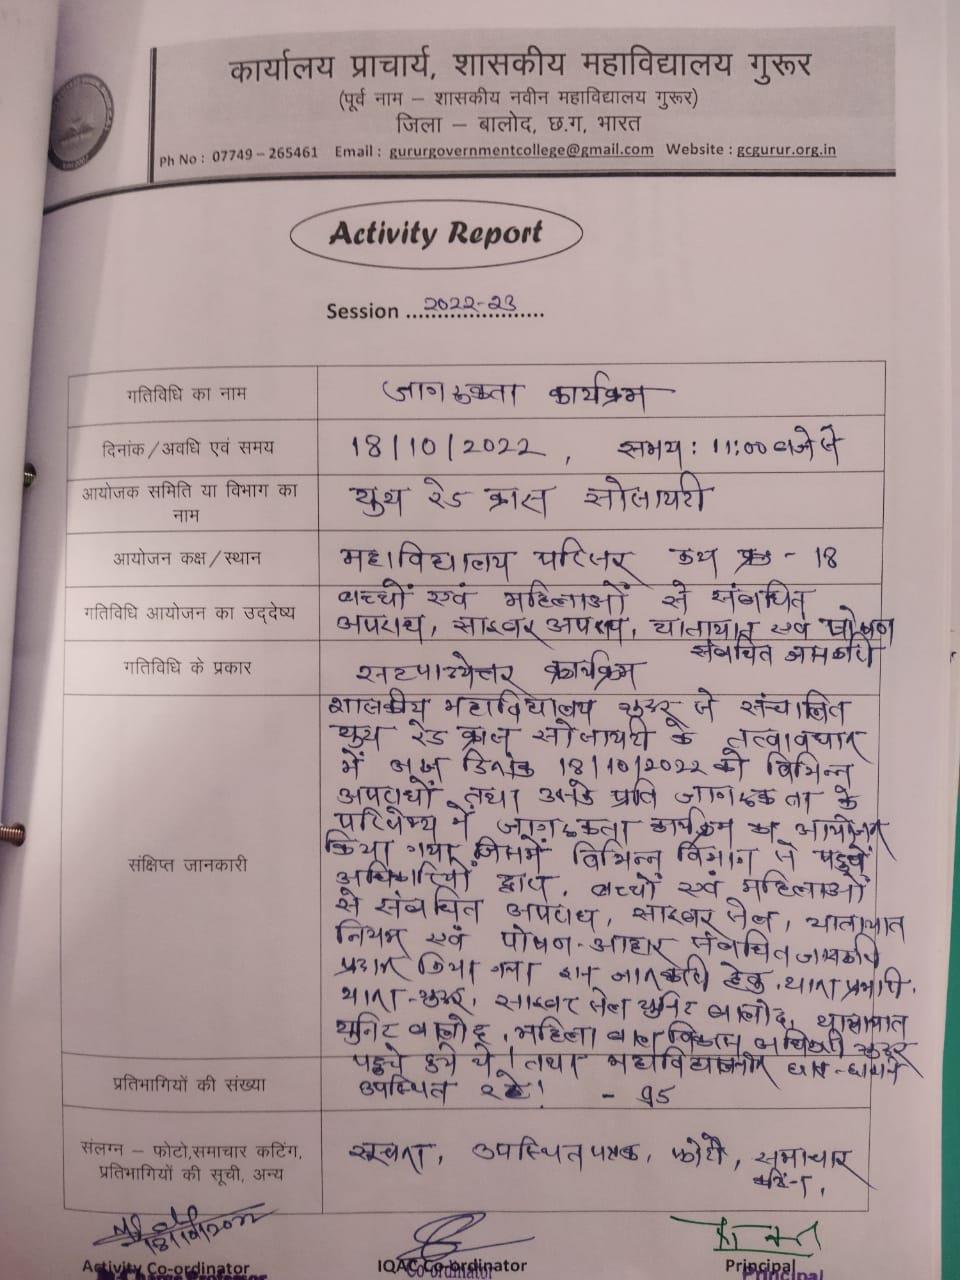 कार्यालय प्राचार्य, शासकीय महाविद्यालय गुरूर
(पूर्व नाम – शासकीय नवीन महाविद्यालय गुरूर)
जिला – बालोद, छ.ग, भारत
Ph No : 07749 – 265461 Email : gururgovernmentcollege@gmail.com Website : gcgurur.org.in
Activity Report
Session ...2022-23...
गतिविधि का नाम
जागरूकता कार्यक्रम
दिनांक/अवधि एवं समय
18/10/2022, समय : 11:00 बजे से
आयोजक समिति या विभाग का
नाम
यूथ रेड क्रास सोसायटी
आयोजन कक्ष/स्थान
महाविद्यालय परिसर कक्ष क्र - 18
गतिविधि आयोजन का उद्देष्य
बच्चों एवं महिलाओं से संबंधित
अपराध, साइबर अपराध, यातायात एवं पोषण
संबंधित जानकारी
गतिविधि के प्रकार
सहपाठ्येत्तर कार्यक्रम
संक्षिप्त जानकारी
शासकीय महाविद्यालय गुरूर में संचालित
यूथ रेड क्रास सोसायटी के तत्वावधान
में आज दिनांक 18/10/2022 को विभिन्न
अपराधों तथा उनके प्रति जागरूकता के
परिपेक्ष्य में जागरूकता कार्यक्रम का आयोजन
किया गया जिसमें विभिन्न विभाग से पहुचें
अधिकारियों द्वारा, बच्चों एवं महिलाओं
से संबंधित अपराध, साइबर सेल, यातायात
नियम एवं पोषण-आहार संबंधित जानकारी
प्रदान किया गया इस जानकारी हेतु, थाना प्रभारी,
थाना-गुरूर, साइबर सेल यूनिट बालोद, यातायात
यूनिट बालोद, महिला बाल विकास अधिकारी गुरूर
पहुचे हुये थे! तथा महाविद्यालयीन छात्र-छात्राएं
उपस्थित रहे!
प्रतिभागियों की संख्या
- 95
संलग्न – फोटो,समाचार कटिंग,
प्रतिभागियों की सूची, अन्य
सूचना, उपस्थित पत्रक, फोटो, समाचार
कटिंग,
18/10/2022
Activity Co-ordinator
IQAC Co-ordinator
Co-ordinator
Principal
Principal